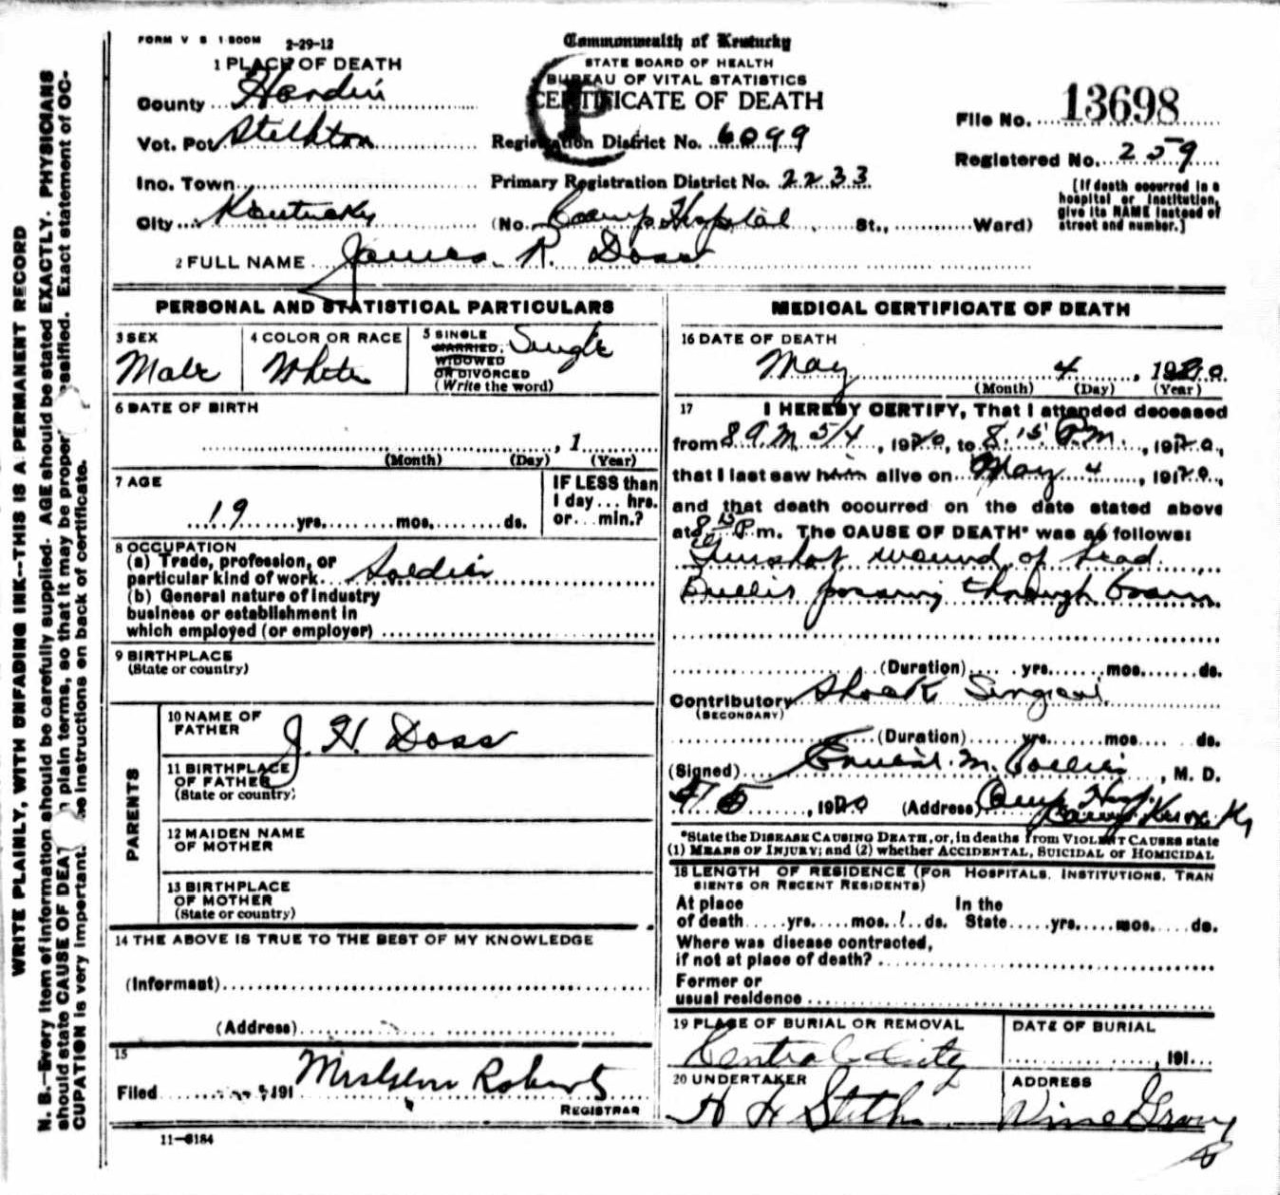 FORM V S 1 500M 2-29-12
Commonwealth of Kentucky
STATE BOARD OF HEALTH
BUREAU OF VITAL STATISTICS
CERTIFICATE OF DEATH
P
1 PLACE OF DEATH
County Hardin
Vot. Pct Stithton
Ino. Town
City Kentucky
Registration District No. 6099
Primary Registration District No. 2233
(No. Camp Hospital St., Ward)
File No. 13698
Registered No. 259
[If death occurred in a
hospital or institution,
give its NAME instead of
street and number.]
2 FULL NAME James R. Doss
PERSONAL AND STATISTICAL PARTICULARS
3 SEX
Male
4 COLOR OR RACE
White
5 SINGLE
MARRIED,
WIDOWED
OR DIVORCED
(Write the word)
Single
6 DATE OF BIRTH
, 1
(Month) (Day) (Year)
7 AGE
19 yrs. mos. ds.
IF LESS than
1 day ... hrs.
or ... min.?
8 OCCUPATION
(a) Trade, profession, or
particular kind of work Soldier
(b) General nature of industry
business or establishment in
which employed (or employer)
9 BIRTHPLACE
(State or country)
PARENTS
10 NAME OF
FATHER
J. H. Doss
11 BIRTHPLACE
OF FATHER
(State or country)
12 MAIDEN NAME
OF MOTHER
13 BIRTHPLACE
OF MOTHER
(State or country)
14 THE ABOVE IS TRUE TO THE BEST OF MY KNOWLEDGE
(Informant)
(Address)
15
Filed 191 Roberts
REGISTRAR
11-6184
MEDICAL CERTIFICATE OF DEATH
16 DATE OF DEATH
May 4, 1920
(Month) (Day) (Year)
17 I HEREBY CERTIFY, That I attended deceased
from 8 A.M 5/4, 1920, to 8.15 P.M., 1920,
that I last saw him alive on May 4, 1920,
and that death occurred on the date stated above
at 8 15 P.m. The CAUSE OF DEATH* was as follows:
Gunshot wound of head
passing through brain
(Duration) yrs. mos. ds.
Contributory Shock
(SECONDARY)
(Duration) yrs. mos. ds.
(Signed) M. , M. D.
5, 1920 (Address) Camp Hosp.
Camp Knox Ky
*State the DISEASE CAUSING DEATH, or, in deaths from VIOLENT CAUSES state
(1) MEANS OF INJURY; and (2) whether ACCIDENTAL, SUICIDAL or HOMICIDAL
18 LENGTH OF RESIDENCE (FOR HOSPITALS, INSTITUTIONS, TRAN
SIENTS OR RECENT RESIDENTS)
At place In the
of death yrs. mos. 1 ds. State yrs. mos. ds.
Where was disease contracted,
if not at place of death?
Former or
usual residence
19 PLACE OF BURIAL OR REMOVAL
Central City
DATE OF BURIAL
, 191
20 UNDERTAKER
H H Stith
ADDRESS
Vine Grove
WRITE PLAINLY, WITH UNFADING INK—THIS IS A PERMANENT RECORD
N. B.—Every item of information should be carefully supplied. AGE should be stated EXACTLY. PHYSICIANS
should state CAUSE OF DEAT plain terms, so that it may be proper assified. Exact statement of OC-
CUPATION is very important. instructions on back of certificate.